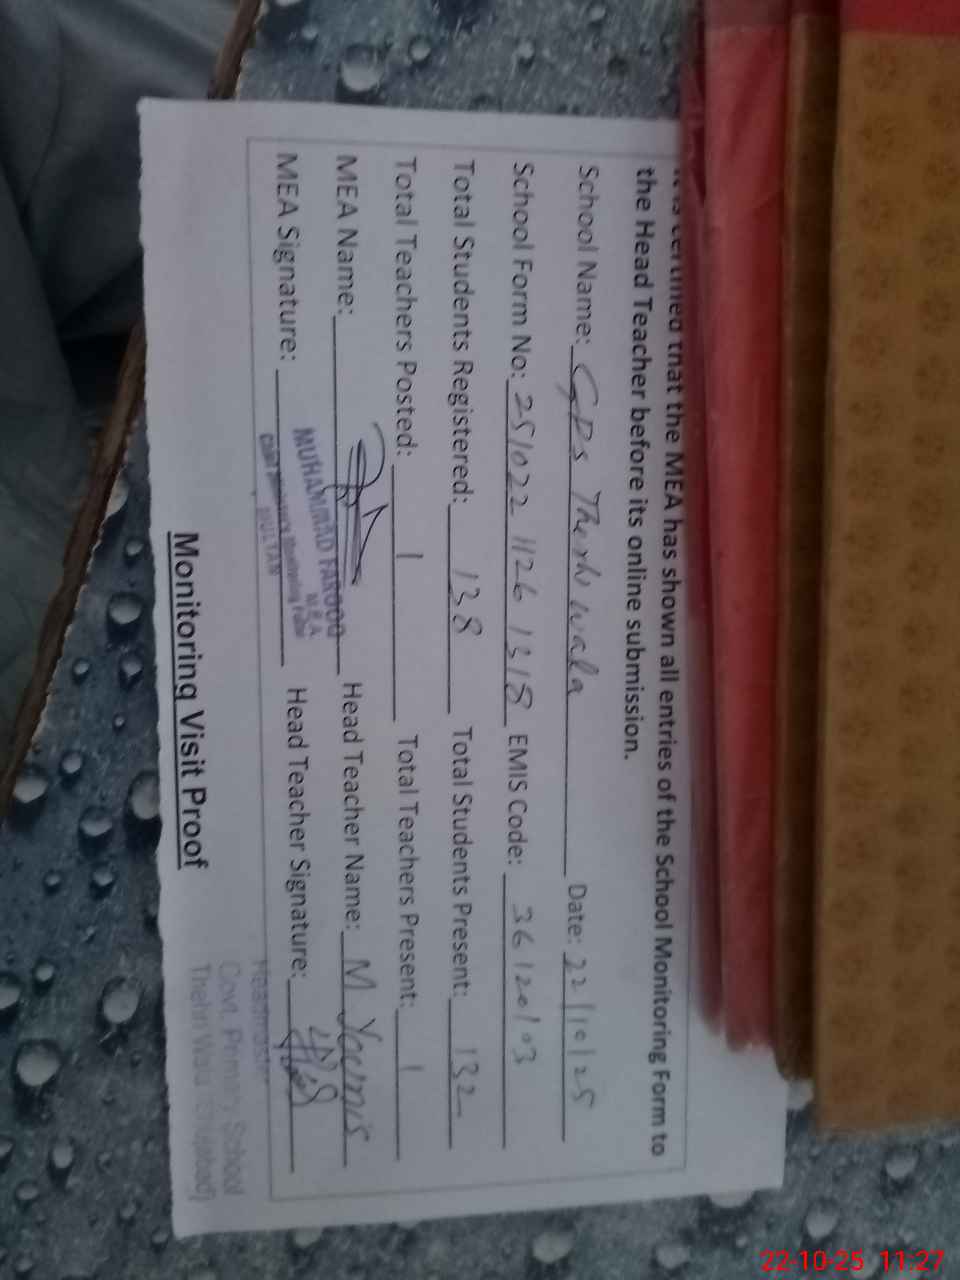 that the MEA has shown all entries of the School Monitoring Form to
the Head Teacher before its online submission.
School Name: GPS Date: 22/10/25
School Form No: 251022 1126 1318 EMIS Code: 36120103
Total Students Registered: 138 Total Students Present: 132
Total Teachers Posted: 1 Total Teachers Present: 1
MEA Name: Head Teacher Name: M
MEA Signature: Head Teacher Signature:
MUHAMMAD FAROOQ
M.E.A
MULTAN
Headmaster
Govt. Primary School
Monitoring Visit Proof
22-10-25 11:27